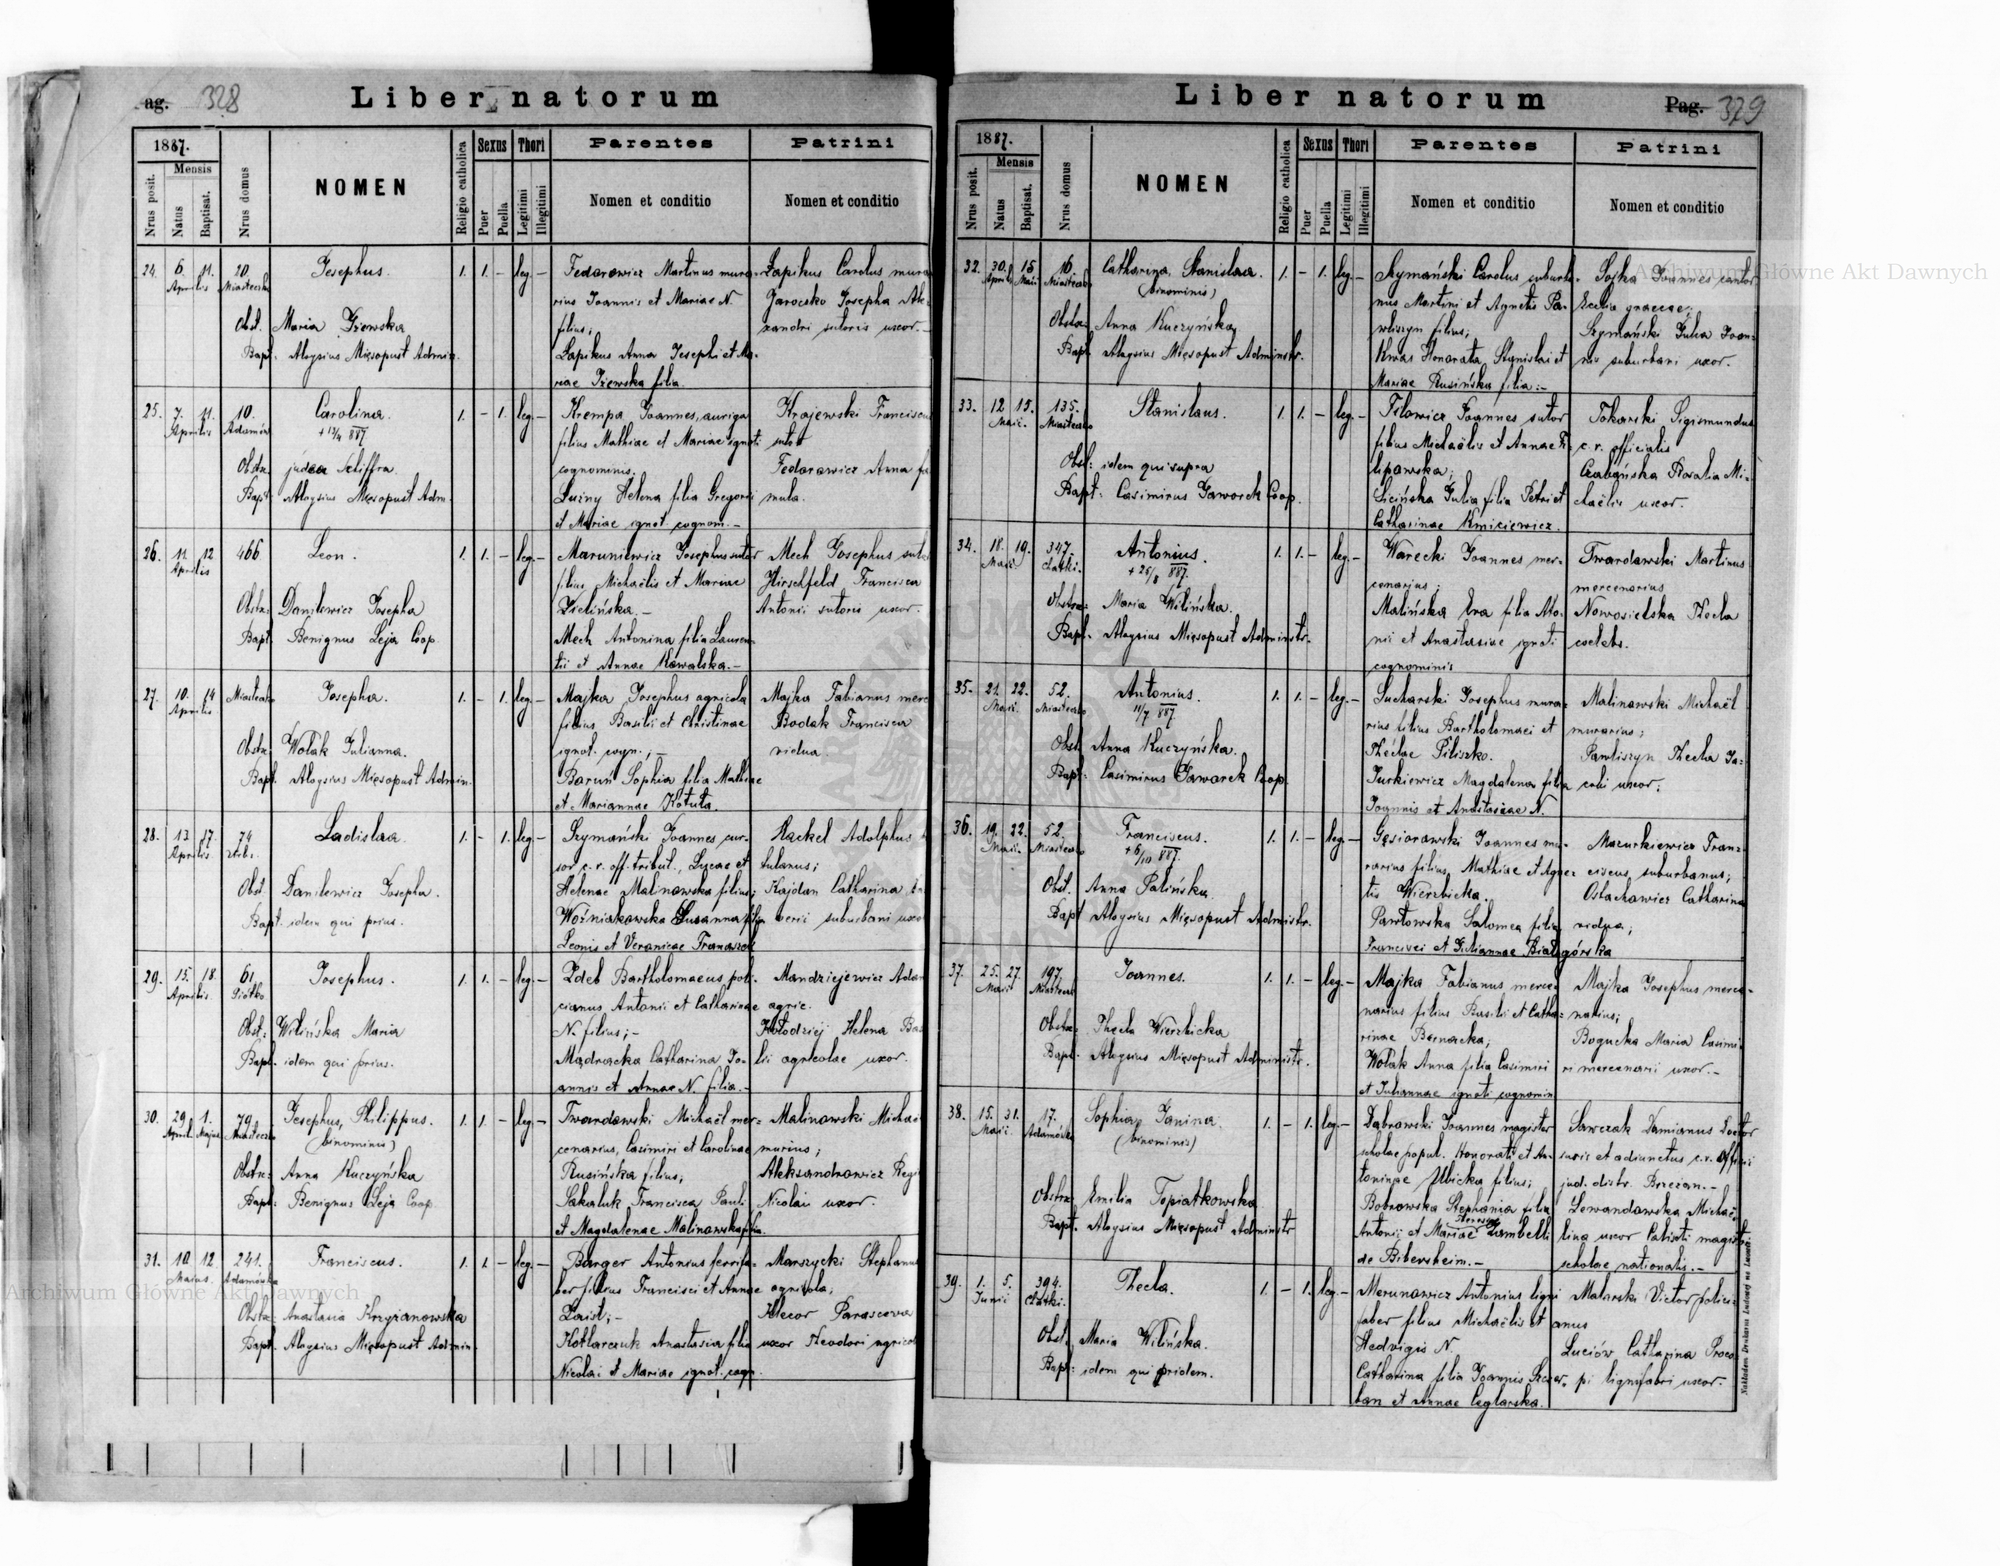 ag. 328
Liber natorum
1887.
Mensis
Nrus posit.
Natus
Baptisat.
Nrus domus
NOMEN
Religio catholica
Sexus
Puer
Puella
Thori
Legitimi
Illegitimi
Parentes
Nomen et conditio
Patrini
Nomen et conditio
24. 6. 11. 20. Josephus. 1. 1. – leg. –
Aprilis Miasteczko
Fedorowicz Martinus mura-
rius Joannis et Mariae N.
filius;
Łapikus Anna Josephi et Ma-
riae Iżewska filia.
Łapikus Carolus mura
Jarocsko Josepha Ale-
xandri sutoris uxor. –
Obst. Maria Iżewska
Bapt. Aloysius Mięsopust Admin.
25. 7. 11. 10. Carolina. 1. – 1. leg. –
Aprilis Adamów
+ 13/4 887
Krempa Joannes, auriga
filius Mathiae et Mariae ignoti
cognominis.
Łuzny Helena filia Gregorii
et Mariae ignot. cognom. –
Krajewski Franciscus
sutor
Fedorowicz Anna fa
mula.
Obstr. judea Schiffra
Bapt. Aloysius Mięsopust Adm.
26. 11. 12 466. Leon. 1. 1. – leg. –
Aprilis
Maruniewicz Josephus sutor
filius Michaëlis et Mariae
Zielińska. –
Mech Antonina filia Lauren-
tii et Annae Kowalska. –
Mech Josephus suto
Hirschfeld Francisca
Antonii sutoris uxor.
Obstr. Danilewicz Josepha
Bapt. Benignus Leja Coop.
27. 10. 14 Miasteczko Josepha. 1. – 1. leg. –
Aprilis
Majka Josephus agricola
filius Basilii et Christinae
ignot. cogn.; –
Baruń Sophia filia Mathiae
et Mariannae Kotuła.
Majka Fabianus merc
Bodak Francisca
vidua.
Obstr. Wolak Julianna.
Bapt. Aloysius Mięsopust Admin.
28. 13 17. 74 Ladislaa. 1. – 1. leg. –
Aprilis
Szymański Joannes cur-
sor c. r. off. tribut., Lucae et
Helenae Malinowska filius;
Woźniakowska Susanna filia
Leonis et Veronicae
Rackel Adolphus
tulanus;
Hajdan Catharina
verii suburbani uxor
Obst. Danilewicz Josepha.
Bapt. idem qui prius.
29. 15. 18. 61. Josephus. 1. 1. – leg. –
Aprilis. Siółko
Zdeb Bartholomaeus poli-
cianus Antonii et Catharinae
N. filius; –
Mądracka Catharina Jo-
annis et Annae N. filia. –
Mandziejewicz Adam
agric.
Kołodziej Helena Bas
lii agricolae uxor.
Obst. Wilińska Maria
Bapt. idem qui prius.
30. 29. 1. 79. Josephus, Philippus. 1. 1. – leg. –
April. Majus Miasteczko
(binominis)
Twardawski Michaël mer-
cenarius, Casimiri et Carolinae
Rusińska filius;
Sakaluk Francisca Pauli
et Magdalenae Malinowska filia.
Malinawski Michaë
murius;
Aleksandrowicz Regi
Nicolai uxor.
Obstr. Anna Kuczyńska
Bapt. Benignus Leja Coop.
31. 10 12. 241. Franciscus. 1. 1. – leg. –
Maius. Adamówka
Barger Antonius ferrifa-
ber filius Francisci et Annae
Zaist; –
Kotlarczuk Anastasia filia
Nicolai et Mariae ignot. cogn.
Marszycki Stephanus
agricola;
Klecor Parascewa
uxor Theodori agricol
Obstr. Anastasia Krzyżanowska
Bapt. Aloysius Mięsopust Admin.
Liber natorum
Pag. 329
1887.
Mensis
Nrus posit.
Natus
Baptisat.
Nrus domus
NOMEN
Religio catholica
Sexus
Puer
Puella
Thori
Legitimi
Illegitimi
Parentes
Nomen et conditio
Patrini
Nomen et conditio
32. 30. 15 16. Catharina, Stanislaa. 1. – 1. leg. –
Aprilis Maii Miasteczko
(binominis)
Szymański Carolus suburba-
nus Martini et Agnetis Pa-
wliszyn filius;
Kwas Honorata, Stanislai et
Mariae Rusińska filia: –
Sojka Joannes cantor
Eccliae graecae;
Szymański Julia Joan-
nis suburbani uxor.
Obstr. Anna Kuczyńska
Bapt. Aloysius Mięsopust Adminstr.
33. 12 15. 135. Stanislaus. 1. 1. – leg. –
Maii. Miasteczko
Filowicz Joannes sutor
filius Michaëlis et Annae Fi-
lipowska;
Sicińska Julia filia Petri et
Catharinae Kmiciewicz.
Tokarski Sigismundus
c. r. officialis
Czabańska Rosalia Mi-
chaëlis uxor.
Obst: idem qui supra
Bapt: Casimirus Jaworek Coop.
34. 18. 19. 347. Antonius. 1. 1. – leg. –
Maii.
+ 25/8 887.
Warecki Joannes mer-
cenarius;
Malińska Eva filia Ato-
nii et Anastasiae ignoti
cognominis
Twardawski Martinus
mercenarius
Nowosielska Thecla
coelebs.
Obstr: Maria Wilińska.
Bapt. Aloysius Mięsopust Adminstr.
35. 21. 22. 52. Antonius. 1. 1. – leg. –
Maii. Miasteczko
11/7 887
Sucharski Josephus mura-
rius filius Bartholomaei et
Theclae Piliszko.
Jurkiewicz Magdalena filia
Joannis et Anastasiae N.
Malinawski Michaël
murarius;
Pawliszyn Thecla Ja-
cobi uxor;
Obst. Anna Kuczyńska.
Bapt. Casimirus Jaworek Coop.
36. 19. 22. 52. Franciscus. 1. 1. – leg. –
Maii. Miasteczko
+ 6/10 887.
Gęsiorawski Joannes mu-
rarius filius Mathiae et Agne-
tis Wierzbicka.
Pawłowska Salomea filia
Francisci et Juliannae Białogórska
Mazurkiewicz Fran-
ciscus, suburbanus;
Ostachowicz Catharina
vidua;
Obst. Anna Palińska.
Bapt Aloysius Mięsopust Adminstr.
37. 25. 27. 197. Joannes. 1. 1. – leg. –
Maii Miasteczko
Majka Fabianus merce-
narius filius Basilii et Catha-
rinae Bernacka;
Wolak Anna filia Casimiri
et Juliannae ignoti cognomin
Majka Josephus merce-
narius;
Bogucka Maria Casimi-
ri mercenarii uxor. –
Obstr: Thecla Wierzbicka
Bapt. Aloysius Mięsopust Administr.
38. 15. 31. 17. Sophia, Janina. 1. – 1. leg. –
Maii. Adamówka
(binominis)
Dąbrowski Joannes magister
scholae popul. Honorati et An-
toninae Ubicka filius;
Bobrowska Stephania filia
Antonii et Mariae Zambelli
de Bibersheim. –
Sawczak Damianus Doctor
juris et adiunctus c. r. Officii
jud. distr. Brzeżan. –
Lewandowska Michaë-
lina uxor Calixti magistri
scholae nationalis. –
Obstr. Emilia Topiatkowska
Bapt. Aloysius Mięsopust Adminstr
39. 1. 5. 394. Thecla. 1. – 1. leg. –
Junii
Merunowicz Antonius ligni
faber filius Michaëlis et
Hedvigis N.
Catharina filia Joannis Szczer-
ban et Annae Ceglarska.
Malarski Victor polici-
anus
Łuciów Catharina Proco-
pi lignifabri uxor.
Obst. Maria Wilińska.
Bapt: idem qui pridem.
Nakładem Drukarni Ludowej we Lwowie.
Archiwum Główne Akt Dawnych
Archiwum Główne Akt Dawnych